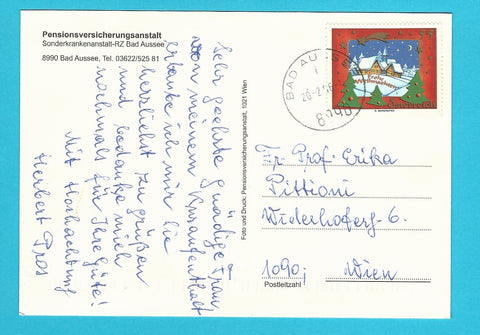 Pensionsversicherungsanstalt
Sonderkrankenanstalt-RZ Bad Aussee
8990 Bad Aussee, Tel. 03622/525 81
Sehr geehrte Gnädige Frau
von meinem Kuraufenthalt
erlaube ich mir Sie
herzlichst zu grüßen
und bedanke mich
nochmals für Ihre Güte!
Mit Hochachtung
Herbert Pros
Foto und Druck: Pensionsversicherungsanstalt, 1021 Wien
BAD AUSSEE
8990
55
Frohe
Weihnachten
Österreich
Fr. Prof. Erika
Pittioni
Widerhoferg-6.
1090, Wien
Postleitzahl